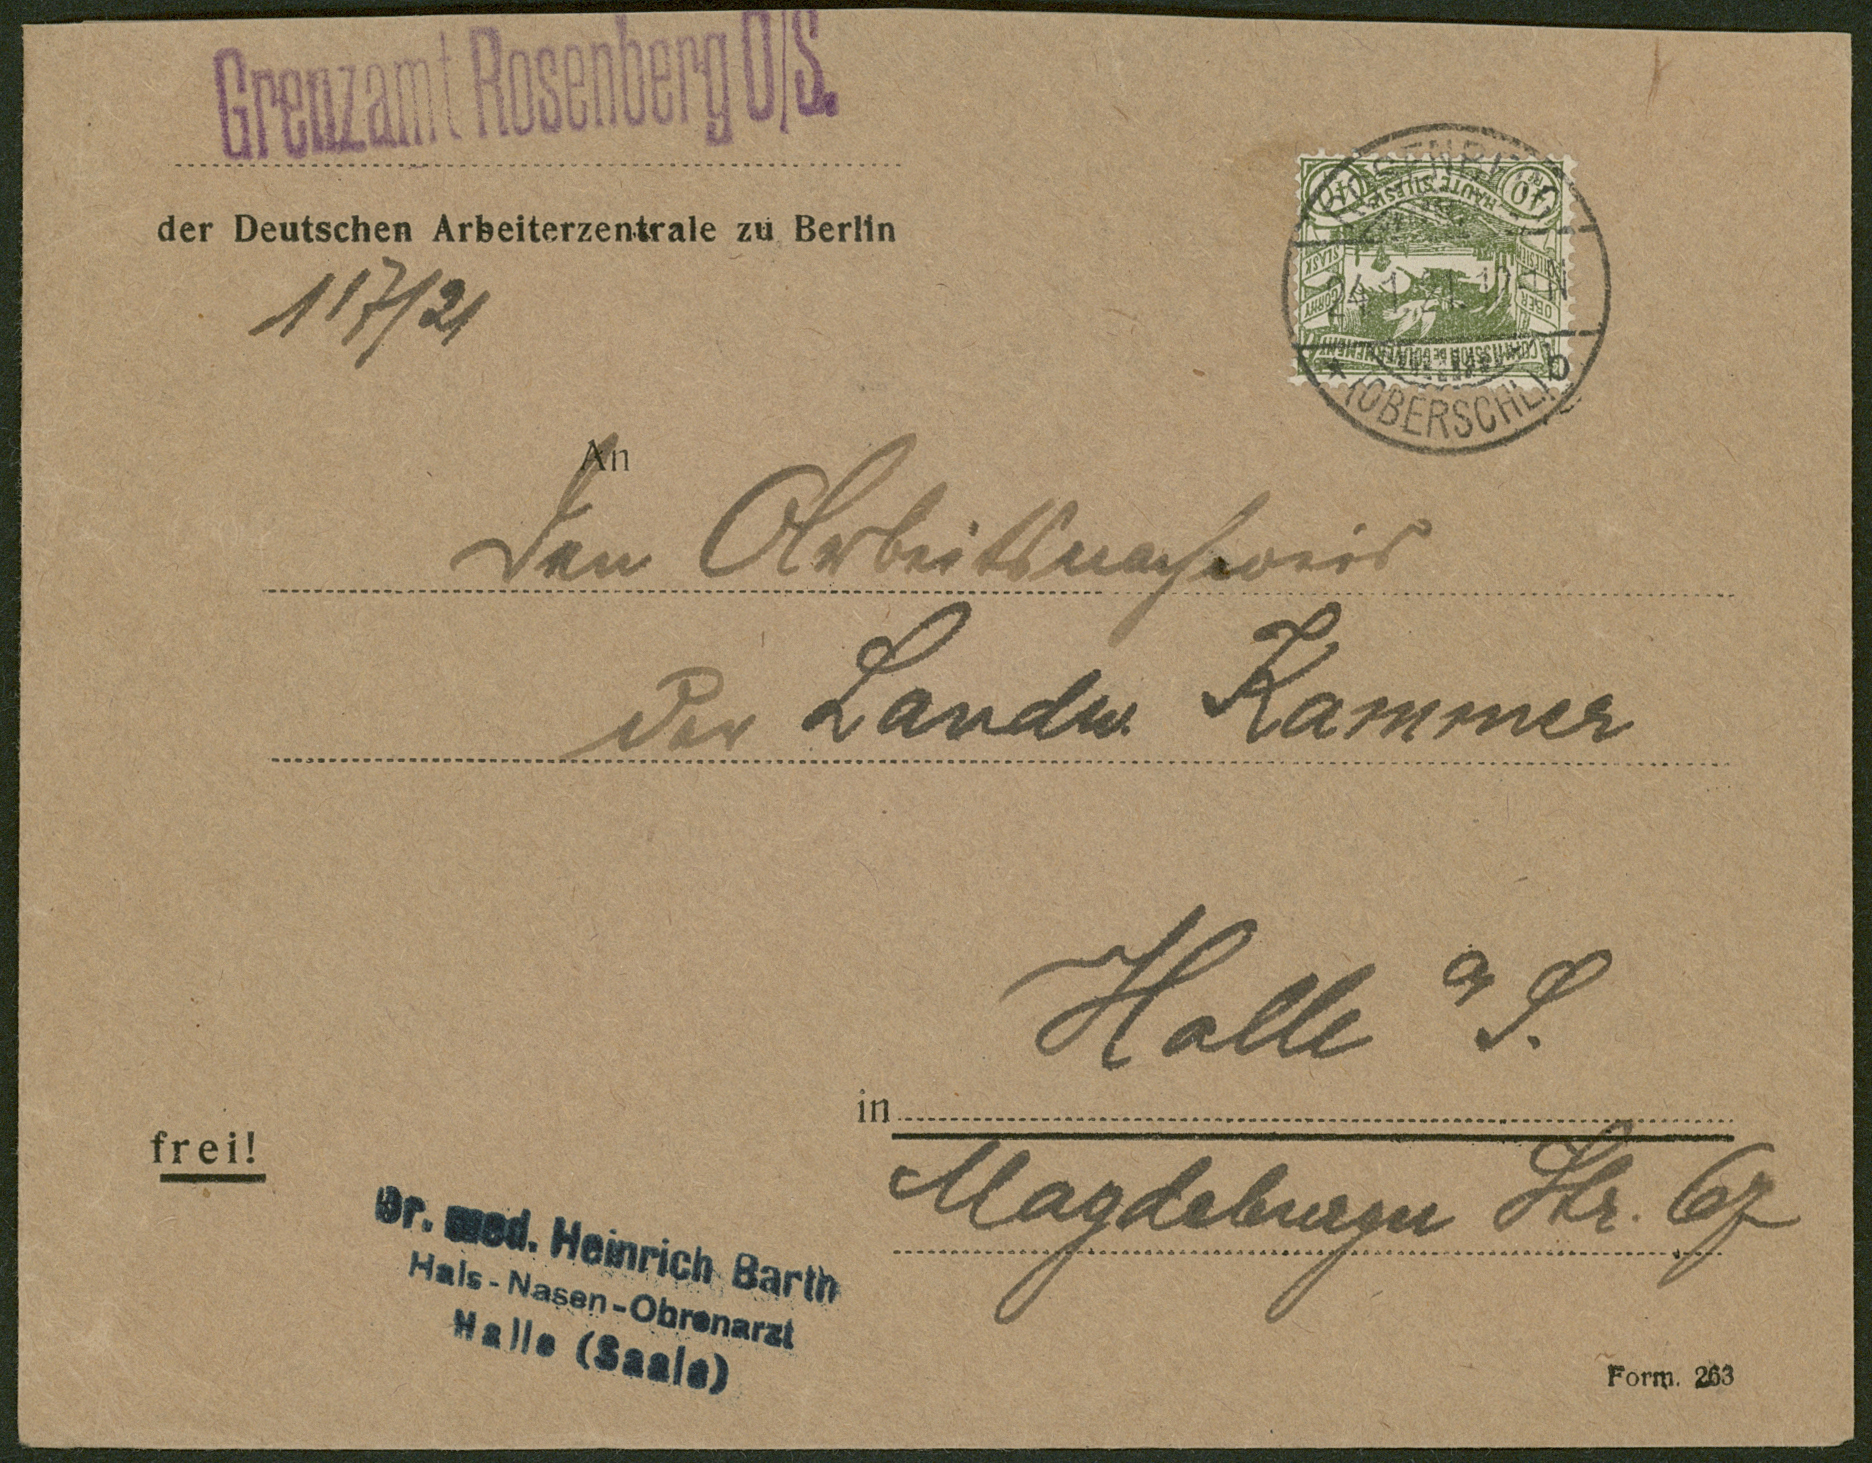 Grenzamt Rosenberg O/S.
der Deutschen Arbeiterzentrale zu Berlin
117/21
40 HAUTE SILÉSIE 40
GORNY ŚLĄSK
OBER
COMMISSION DE GOUVERNEMENT
24.1.21.
* (OBERSCHL.) b
An
den Arbeitsnachweis
der Landw. Kammer
Halle a S.
in
Magdeburger Str. 67
frei!
Dr. med. Heinrich Barth
Hals-Nasen-Ohrenarzt
Halle (Saale)
Form. 263